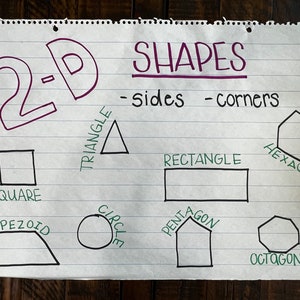 2-D SHAPES
-sides -corners
TRIANGLE
HEXA
RECTANGLE
QUARE
PEZOID
CIRCLE
PENTAGON
OCTAGON